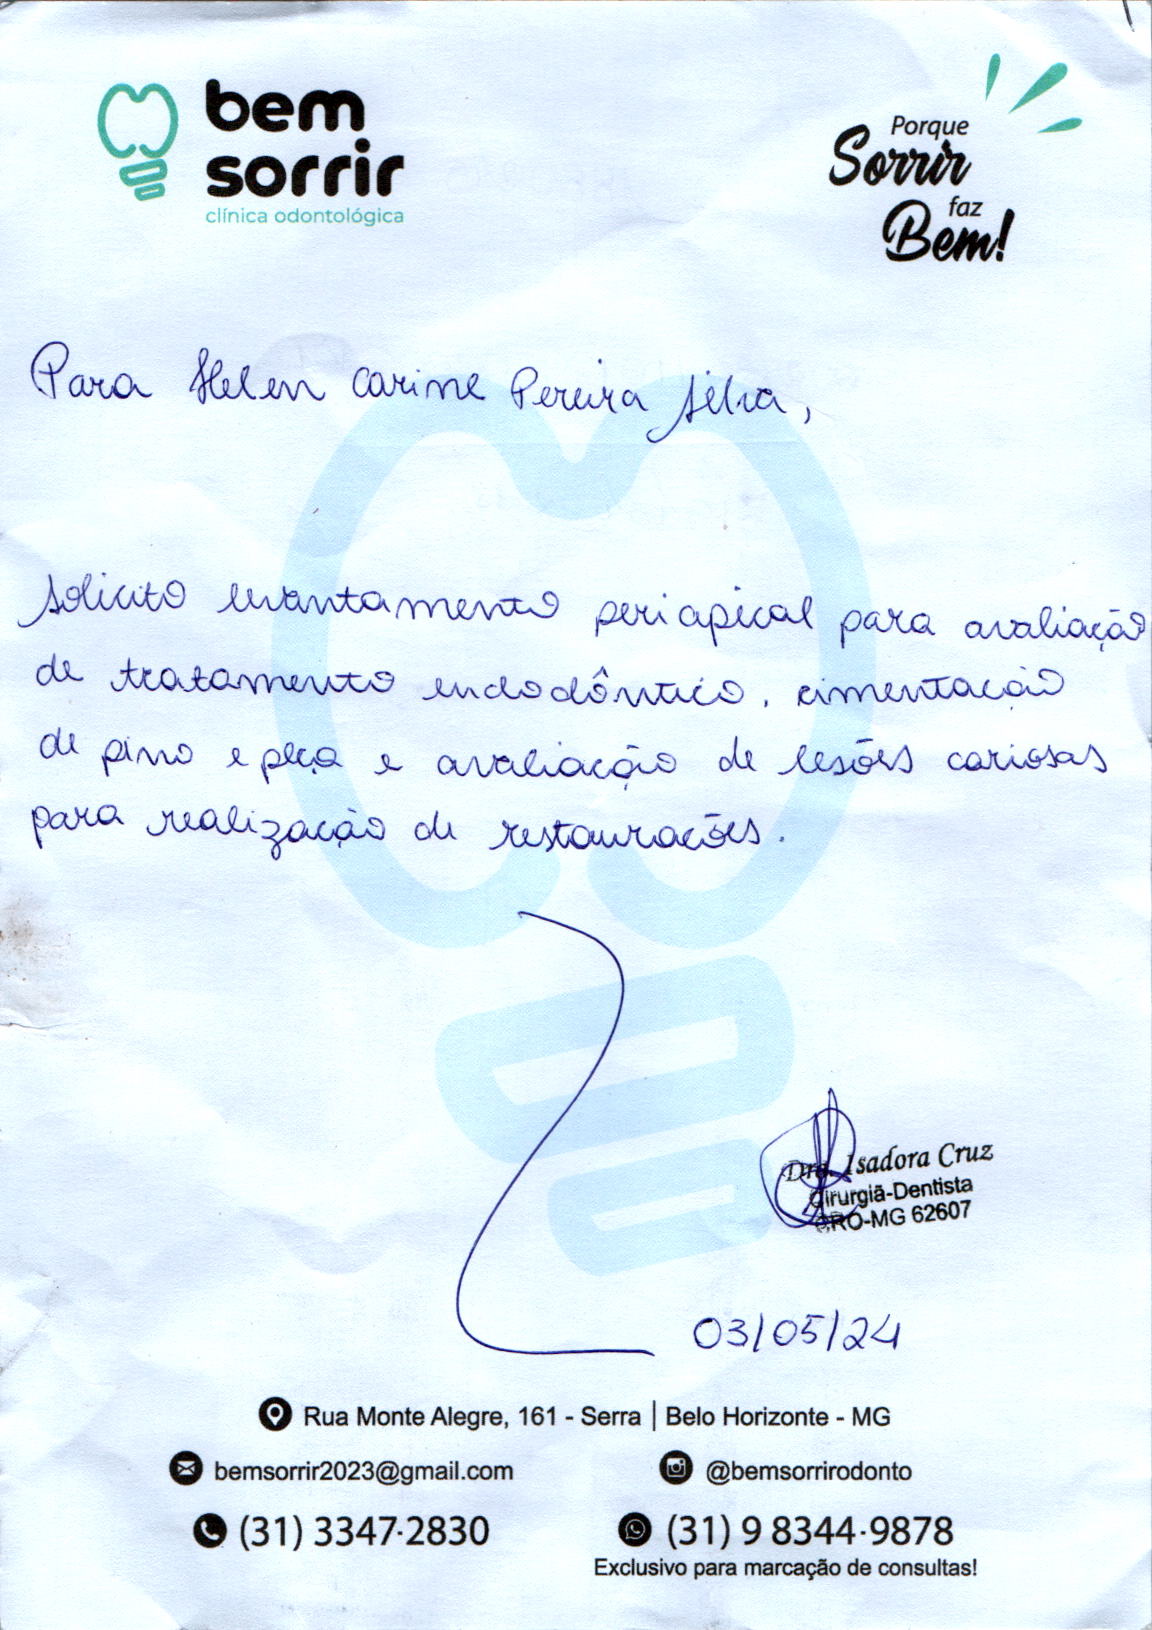 bem
sorrir
clínica odontológica
Porque
Sorrir
faz
Bem!
Para Helen Carine Pereira Silva,
Solicito levantamento periapical para avaliação
de tratamento endodôntico, cimentação
de pino e peça e avaliação de lesões cariosas
para realização de restaurações.
Dra. Isadora Cruz
Cirurgiã-Dentista
CRO-MG 62607
03/05/24
Rua Monte Alegre, 161 - Serra | Belo Horizonte - MG
bemsorrir2023@gmail.com @bemsorrirodonto
(31) 3347-2830 (31) 9 8344-9878
Exclusivo para marcação de consultas!